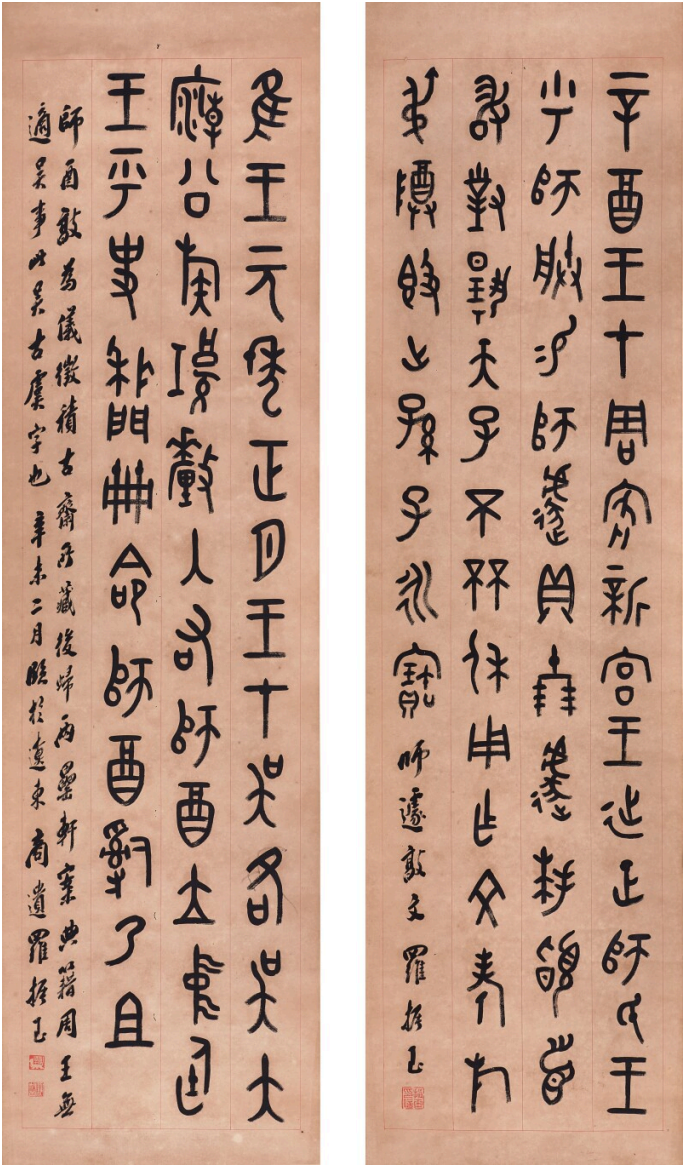 辛酉王才周客新宮王征正師氏王
乎師朕易師遽貝十朋遽拜𩒨首
敢對揚天子不𠀠休用乍文考旄
叔尊𣪘世孫子永寶 師遽敦文 羅振玉
隹王元年正月王才吳各吳大
廟公族釐入右師酉立中廷
王乎史冊命師酉嗣乃且
師酉敦為儀徵積古齋所藏後歸兩罍軒案典籍周王無
適吳事此吳古虞字也 辛未二月臨於遼東 商遺羅振玉